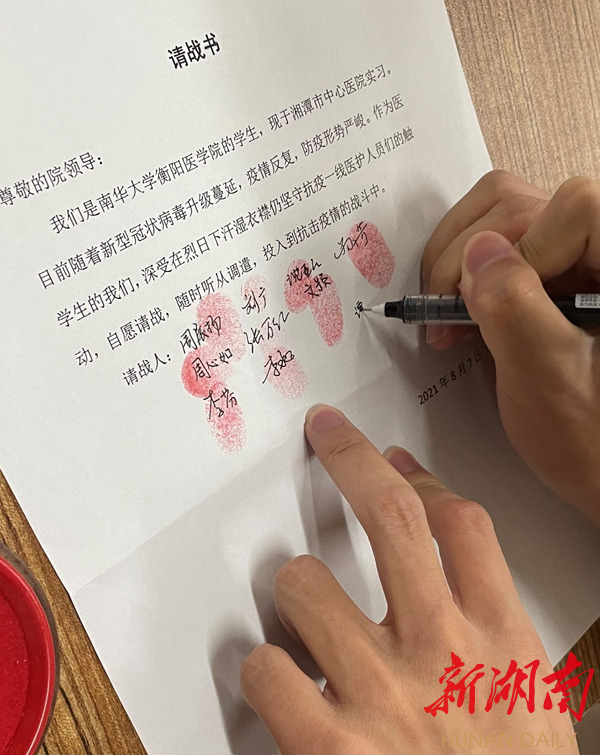 请战书
尊敬的院领导：
我们是南华大学衡阳医学院的学生，现于湘潭市中心医院实习。
目前随着新型冠状病毒升级蔓延，疫情反复，防疫形势严峻。作为医
学生的我们，深受在烈日下汗湿衣襟仍坚守抗疫一线医护人员们的触
动，自愿请战，随时听从调遣，投入到抗击疫情的战斗中。
请战人：
周心如
李芳
2021年8月7日
新湖南
HUNAN DAILY